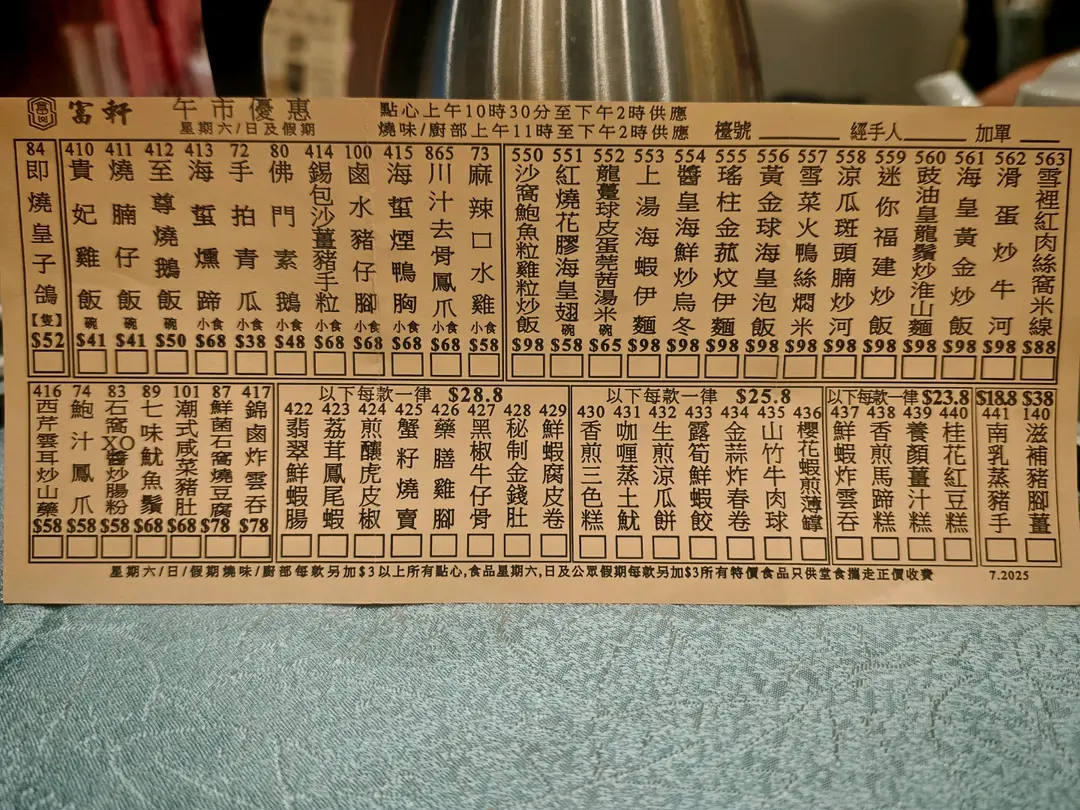 富軒 午市優惠
星期六/日及假期
點心上午10時30分至下午2時供應
燒味/廚部上午11時至下午2時供應
檯號 經手人 加單
84 即燒皇子鴿【隻】 $52
410 貴妃雞飯 碗 $41
411 燒腩仔飯 碗 $41
412 至尊燒鵝飯 碗 $50
413 海蜇燻蹄 小食 $68
72 手拍青瓜 小食 $38
80 佛門素鵝 小食 $48
414 錫包沙薑豬手粒 小食 $68
100 鹵水豬仔腳 小食 $68
415 海蜇煙鴨胸 小食 $68
865 川汁去骨鳳爪 小食 $68
73 麻辣口水雞 小食 $58
550 沙窩鮑魚粒雞粒炒飯 $98
551 紅燒花膠海皇翅 碗 $58
552 龍躉球皮蛋莞茜湯米 碗 $65
553 上湯海蝦伊麵 $98
554 醬皇海鮮炒烏冬 $98
555 瑤柱金菰炆伊麵 $98
556 黃金球海皇泡飯 $98
557 雪菜火鴨絲燜米 $98
558 涼瓜斑頭腩炒河 $98
559 迷你福建炒飯 $98
560 豉油皇龍鬚炒淮山麵 $98
561 海皇黃金炒飯 $98
562 滑蛋炒牛河 $98
563 雪裡紅肉絲窩米線 $88
416 西芹雲耳炒山藥 $58
74 鮑汁鳳爪 $58
83 石窩XO醬炒腸粉 $58
89 七味魷魚鬚 $68
101 潮式咸菜豬肚 $68
87 鮮菌石窩燒豆腐 $78
417 錦鹵炸雲吞 $78
以下每款一律 $28.8
422 翡翠鮮蝦腸
423 荔茸鳳尾蝦
424 煎釀虎皮椒
425 蟹籽燒賣
426 藥膳雞腳
427 黑椒牛仔骨
428 秘制金錢肚
429 鮮蝦腐皮卷
以下每款一律 $25.8
430 香煎三色糕
431 咖喱蒸土魷
432 生煎涼瓜餅
433 露筍鮮蝦餃
434 金蒜炸春卷
435 山竹牛肉球
436 櫻花蝦煎薄罉
以下每款一律 $23.8
437 鮮蝦炸雲吞
438 香煎馬蹄糕
439 養顏薑汁糕
440 桂花紅豆糕
$18.8
441 南乳蒸豬手
$38
140 滋補豬腳薑
星期六/日/假期燒味/廚部每款另加$3以上所有點心,食品星期六,日及公眾假期每款另加$3所有特價食品只供堂食攜走正價收費
7.2025